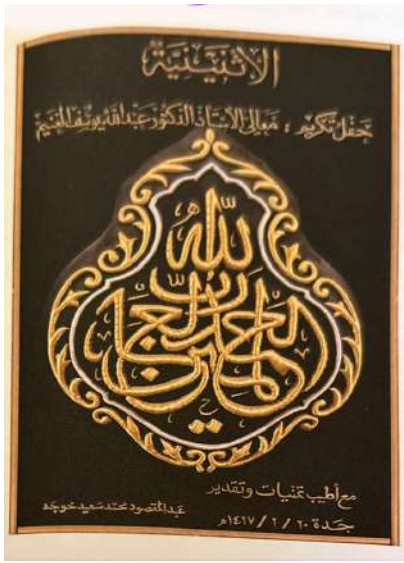 الاثنينية
حفل تكريم : معالي الأستاذ الدكتور عبد الله يوسف الغنيم
الحمد لله رب العالمين
مع أطيب تمنيات وتقدير
عبد المقصود محمد سعيد خوجه
جدة ٢٠ / ٢ / ١٤٢٧هـ